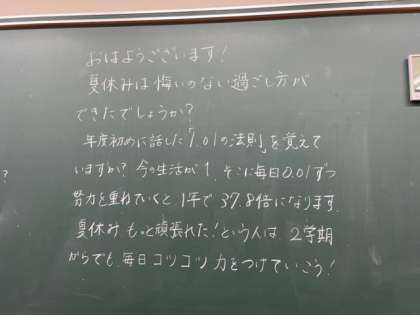 おはようございます!
夏休みは悔いのない過ごし方が
できたでしょうか?
年度初めに話した「1.01の法則」を覚えて
いますか? 今の生活が1、そこに毎日0.01ずつ
努力を重ねていくと、1年で37.8倍になります。
夏休みもっと頑張れた!という人は、2学期
からでも、毎日コツコツ力をつけていこう!
?